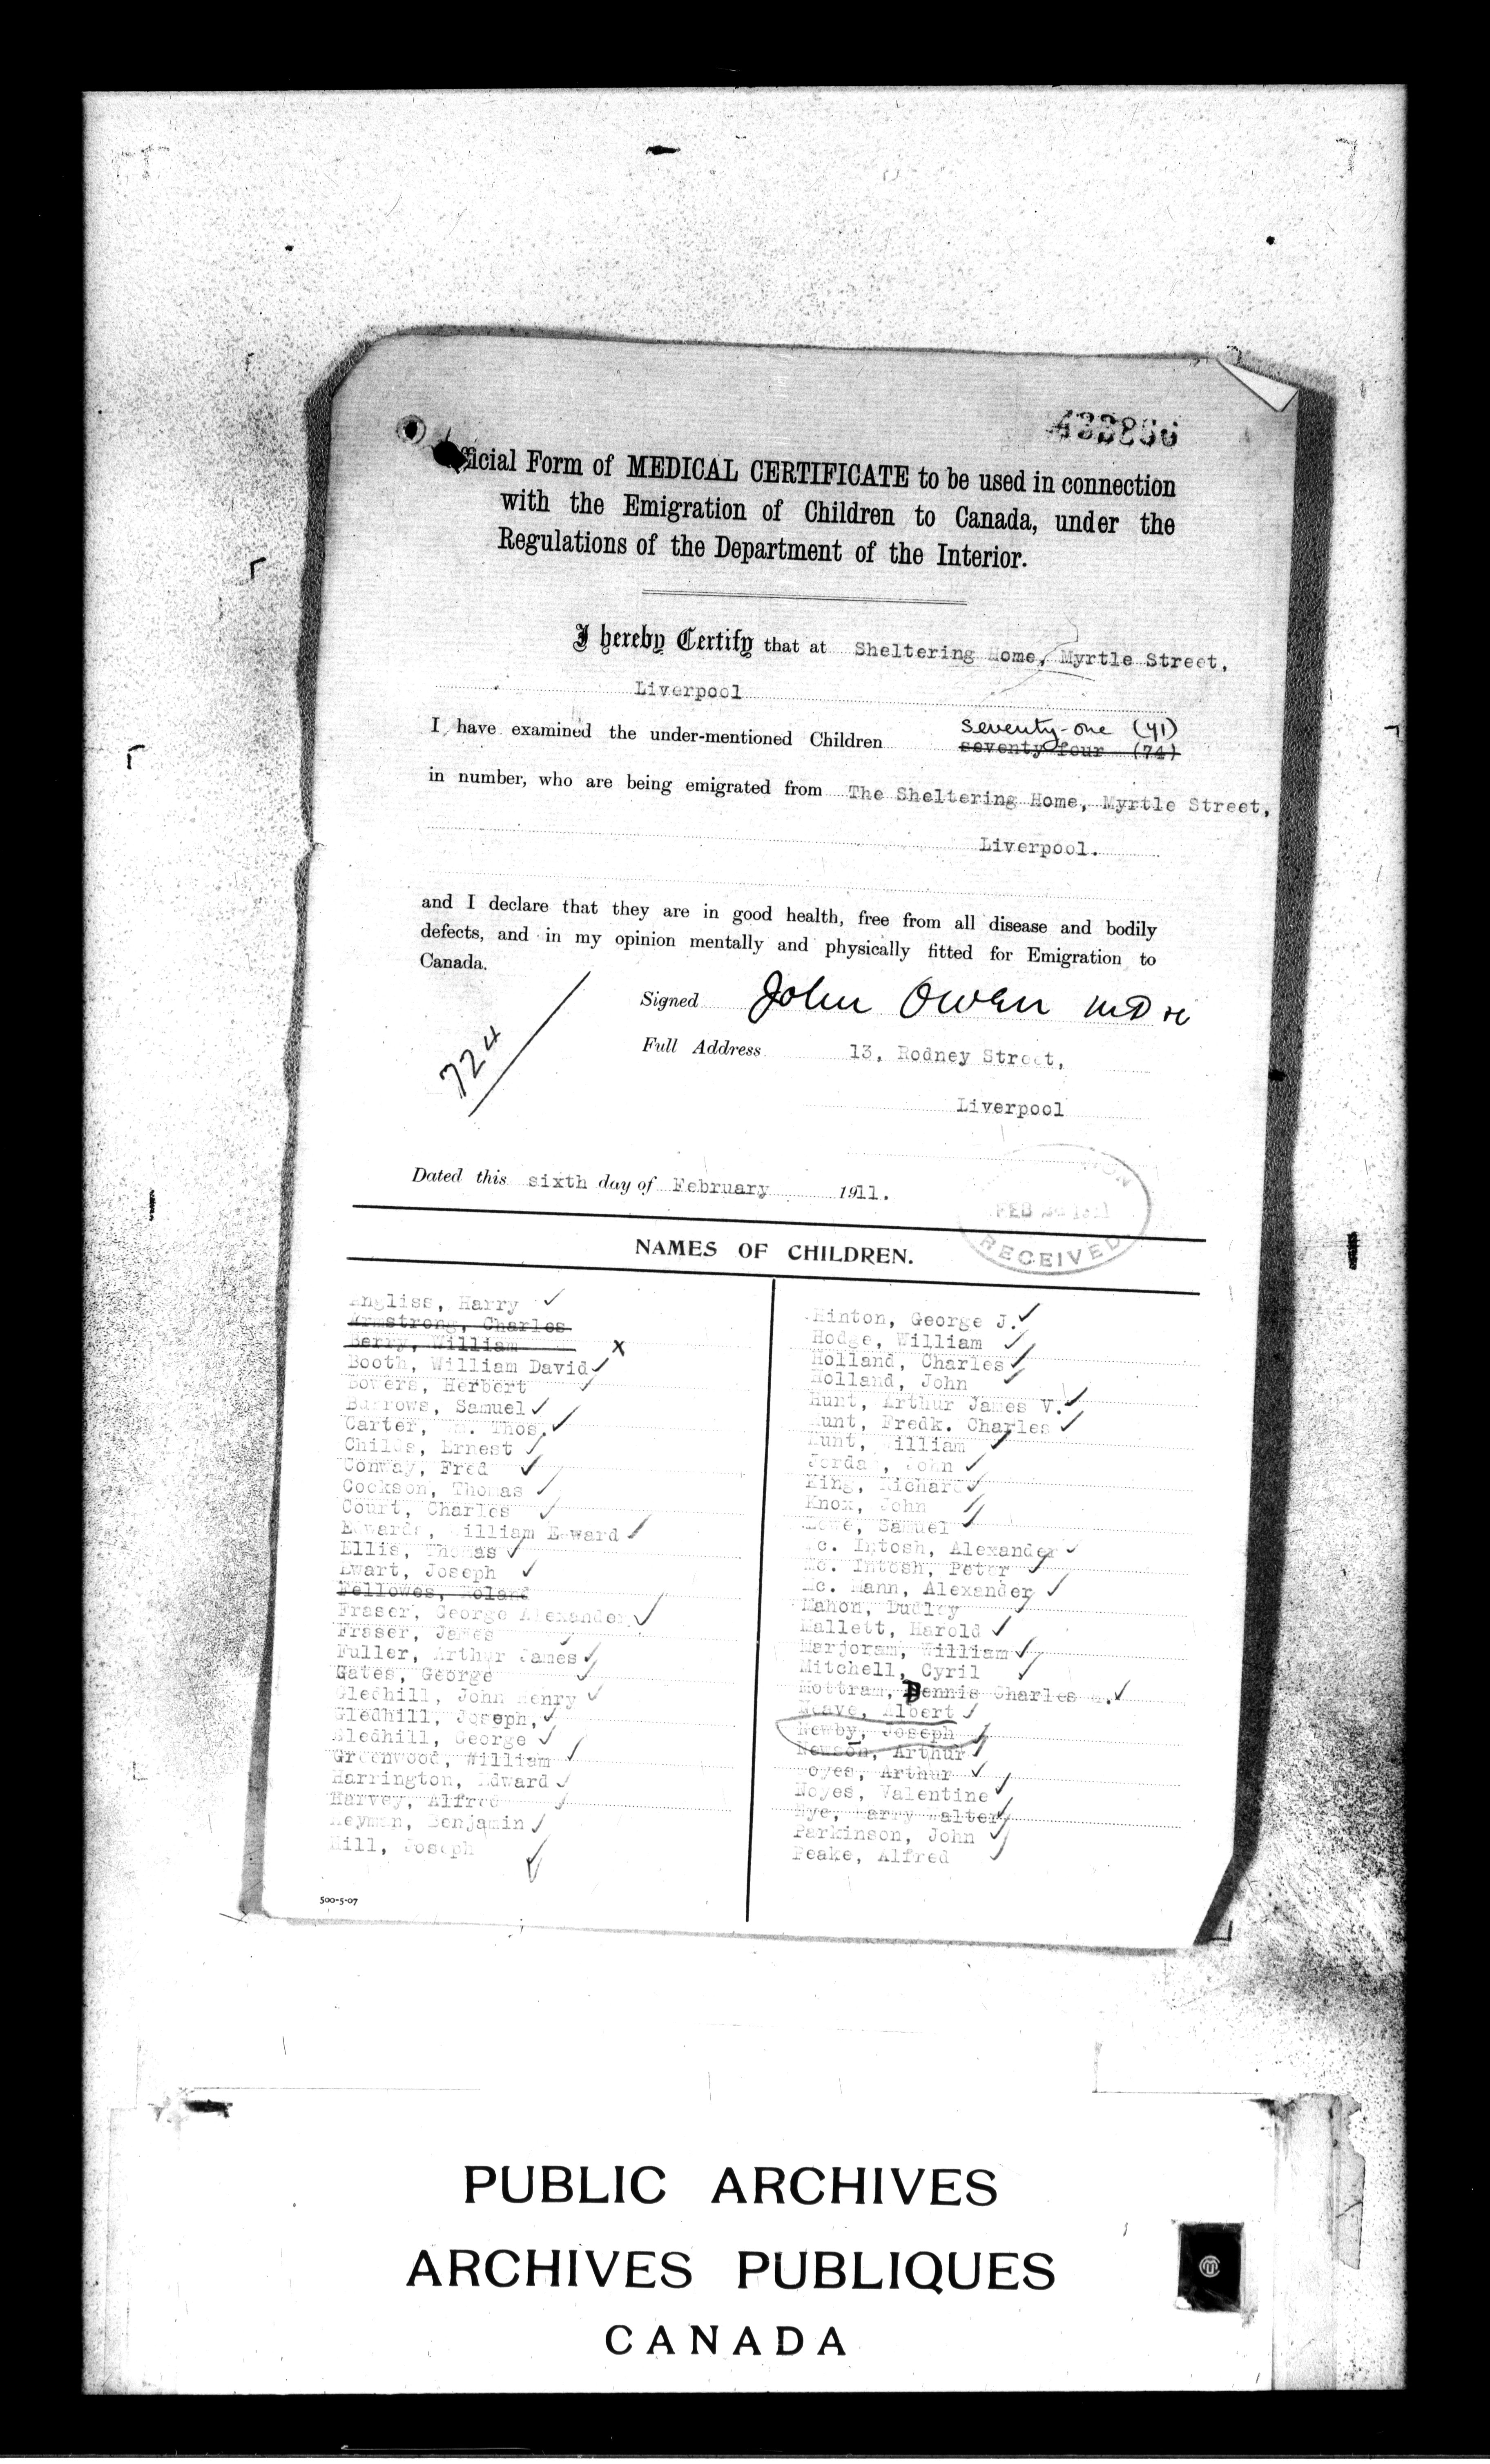 433866
ficial Form of MEDICAL CERTIFICATE to be used in connection
with the Emigration of Children to Canada, under the
Regulations of the Department of the Interior.
I hereby Certify that at Sheltering Home, Myrtle Street,
Liverpool
seventy-one (71)
I have examined the under-mentioned Children seventy four (74)
in number, who are being emigrated from The Sheltering Home, Myrtle Street,
Liverpool.
and I declare that they are in good health, free from all disease and bodily
defects, and in my opinion mentally and physically fitted for Emigration to
Canada.
Signed John Owen M.D.
724
Full Address 13, Rodney Street,
Liverpool
Dated this sixth day of February 1911.
FEB 1911
RECEIVED
NAMES OF CHILDREN.
Angliss, Harry ✓
Armstrong, Charles
Berry, William X
Booth, William David ✓
Bowers, Herbert ✓
Burrows, Samuel ✓
Carter, Wm. Thos. ✓
Childs, Ernest ✓
Conway, Fred ✓
Cookson, Thomas ✓
Court, Charles ✓
Edwards, William Edward ✓
Ellis, Thomas ✓
Ewart, Joseph ✓
Fellowes, Roland
Fraser, George Alexander ✓
Fraser, James ✓
Fuller, Arthur James ✓
Gates, George ✓
Gledhill, John Henry ✓
Gledhill, Joseph, ✓
Gledhill, George ✓
Greenwood, William ✓
Harrington, Edward ✓
Harvey, Alfred ✓
Heyman, Benjamin ✓
Hill, Joseph ✓
Hinton, George J. ✓
Hodge, William ✓
Holland, Charles ✓
Holland, John ✓
Hunt, Arthur James V. ✓
Hunt, Fredk. Charles ✓
Hunt, William ✓
Jordan, John ✓
King, Richard ✓
Knox, John ✓
Lowe, Samuel ✓
Mc. Intosh, Alexander ✓
Mc. Intosh, Peter ✓
Mc. Mann, Alexander ✓
Mahon, Dudley ✓
Mallett, Harold ✓
Marjoram, William ✓
Mitchell, Cyril ✓
Mottram, Dennis Charles ✓
Neave, Albert ✓
Newby, Joseph ✓
Newson, Arthur ✓
Noyes, Arthur ✓
Noyes, Valentine ✓
Nye, Harry Walter ✓
Parkinson, John ✓
Peake, Alfred ✓
500-5-07
PUBLIC ARCHIVES
ARCHIVES PUBLIQUES
CANADA